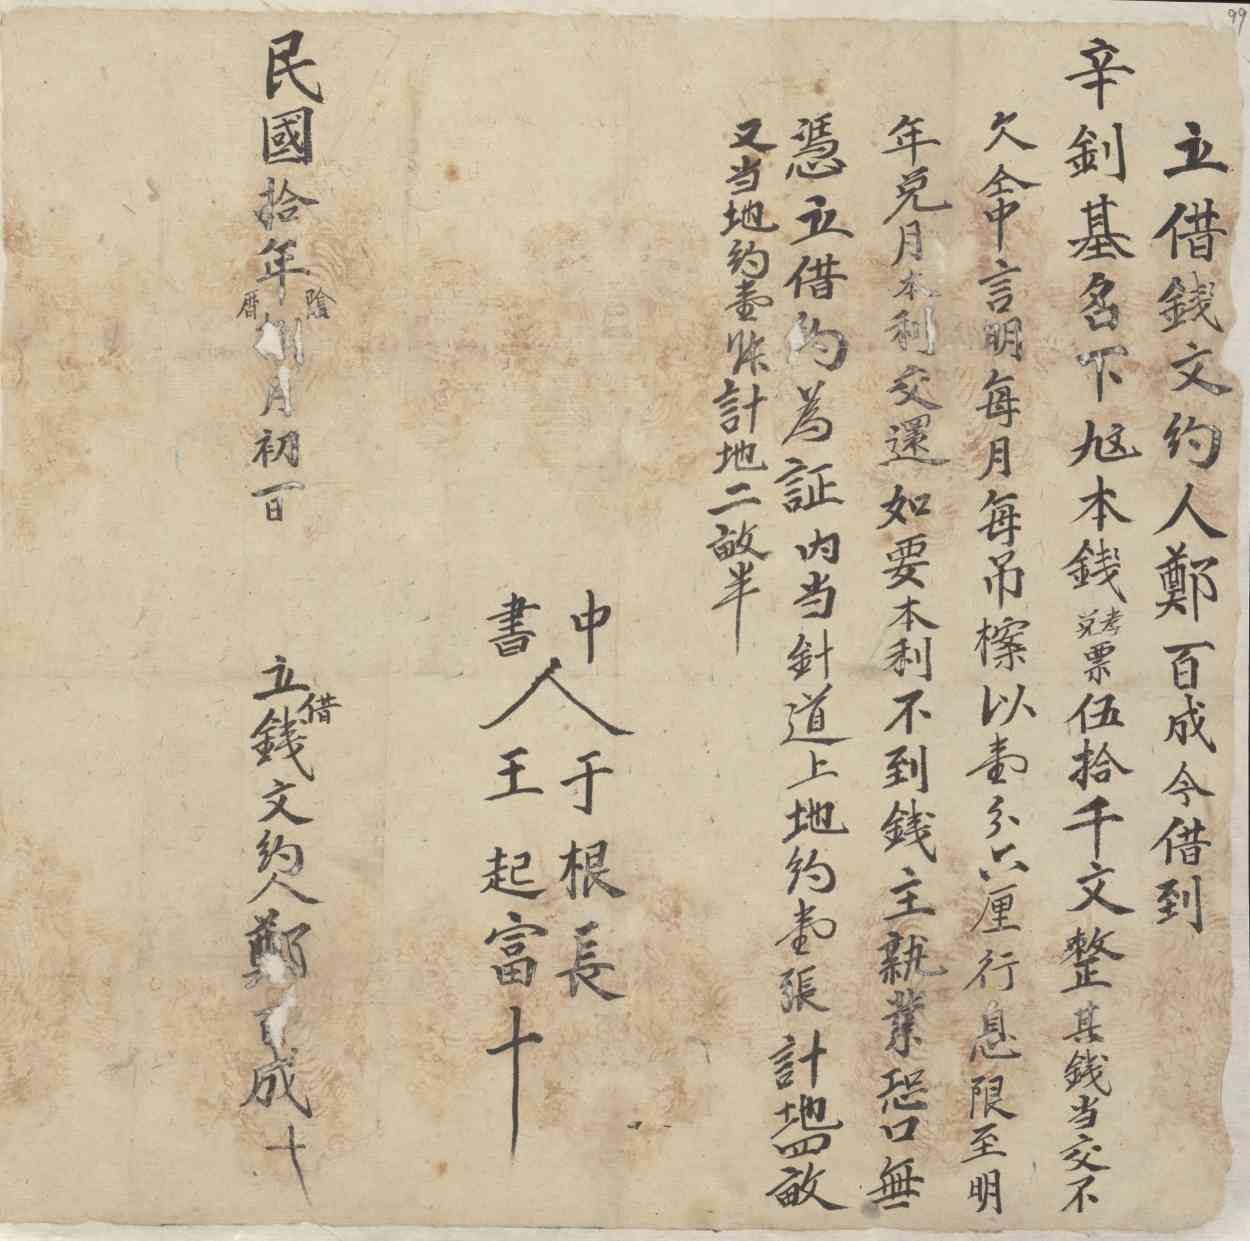 99
立借錢文約人鄭百成今借到
辛釗基名下起本錢兌票伍拾千文整其錢当交不
欠仝中言明每月每吊檫以壹分六厘行息限至明
年兑月本利交還如要本利不到錢主執業恐口無
憑立借約為証内当針道上地約壹張計地四畝
又当地約壹賬計地二畝半
中人于根長
書人王起富十
民國拾年陰曆捌月初一日
立借錢文約人鄭百成十